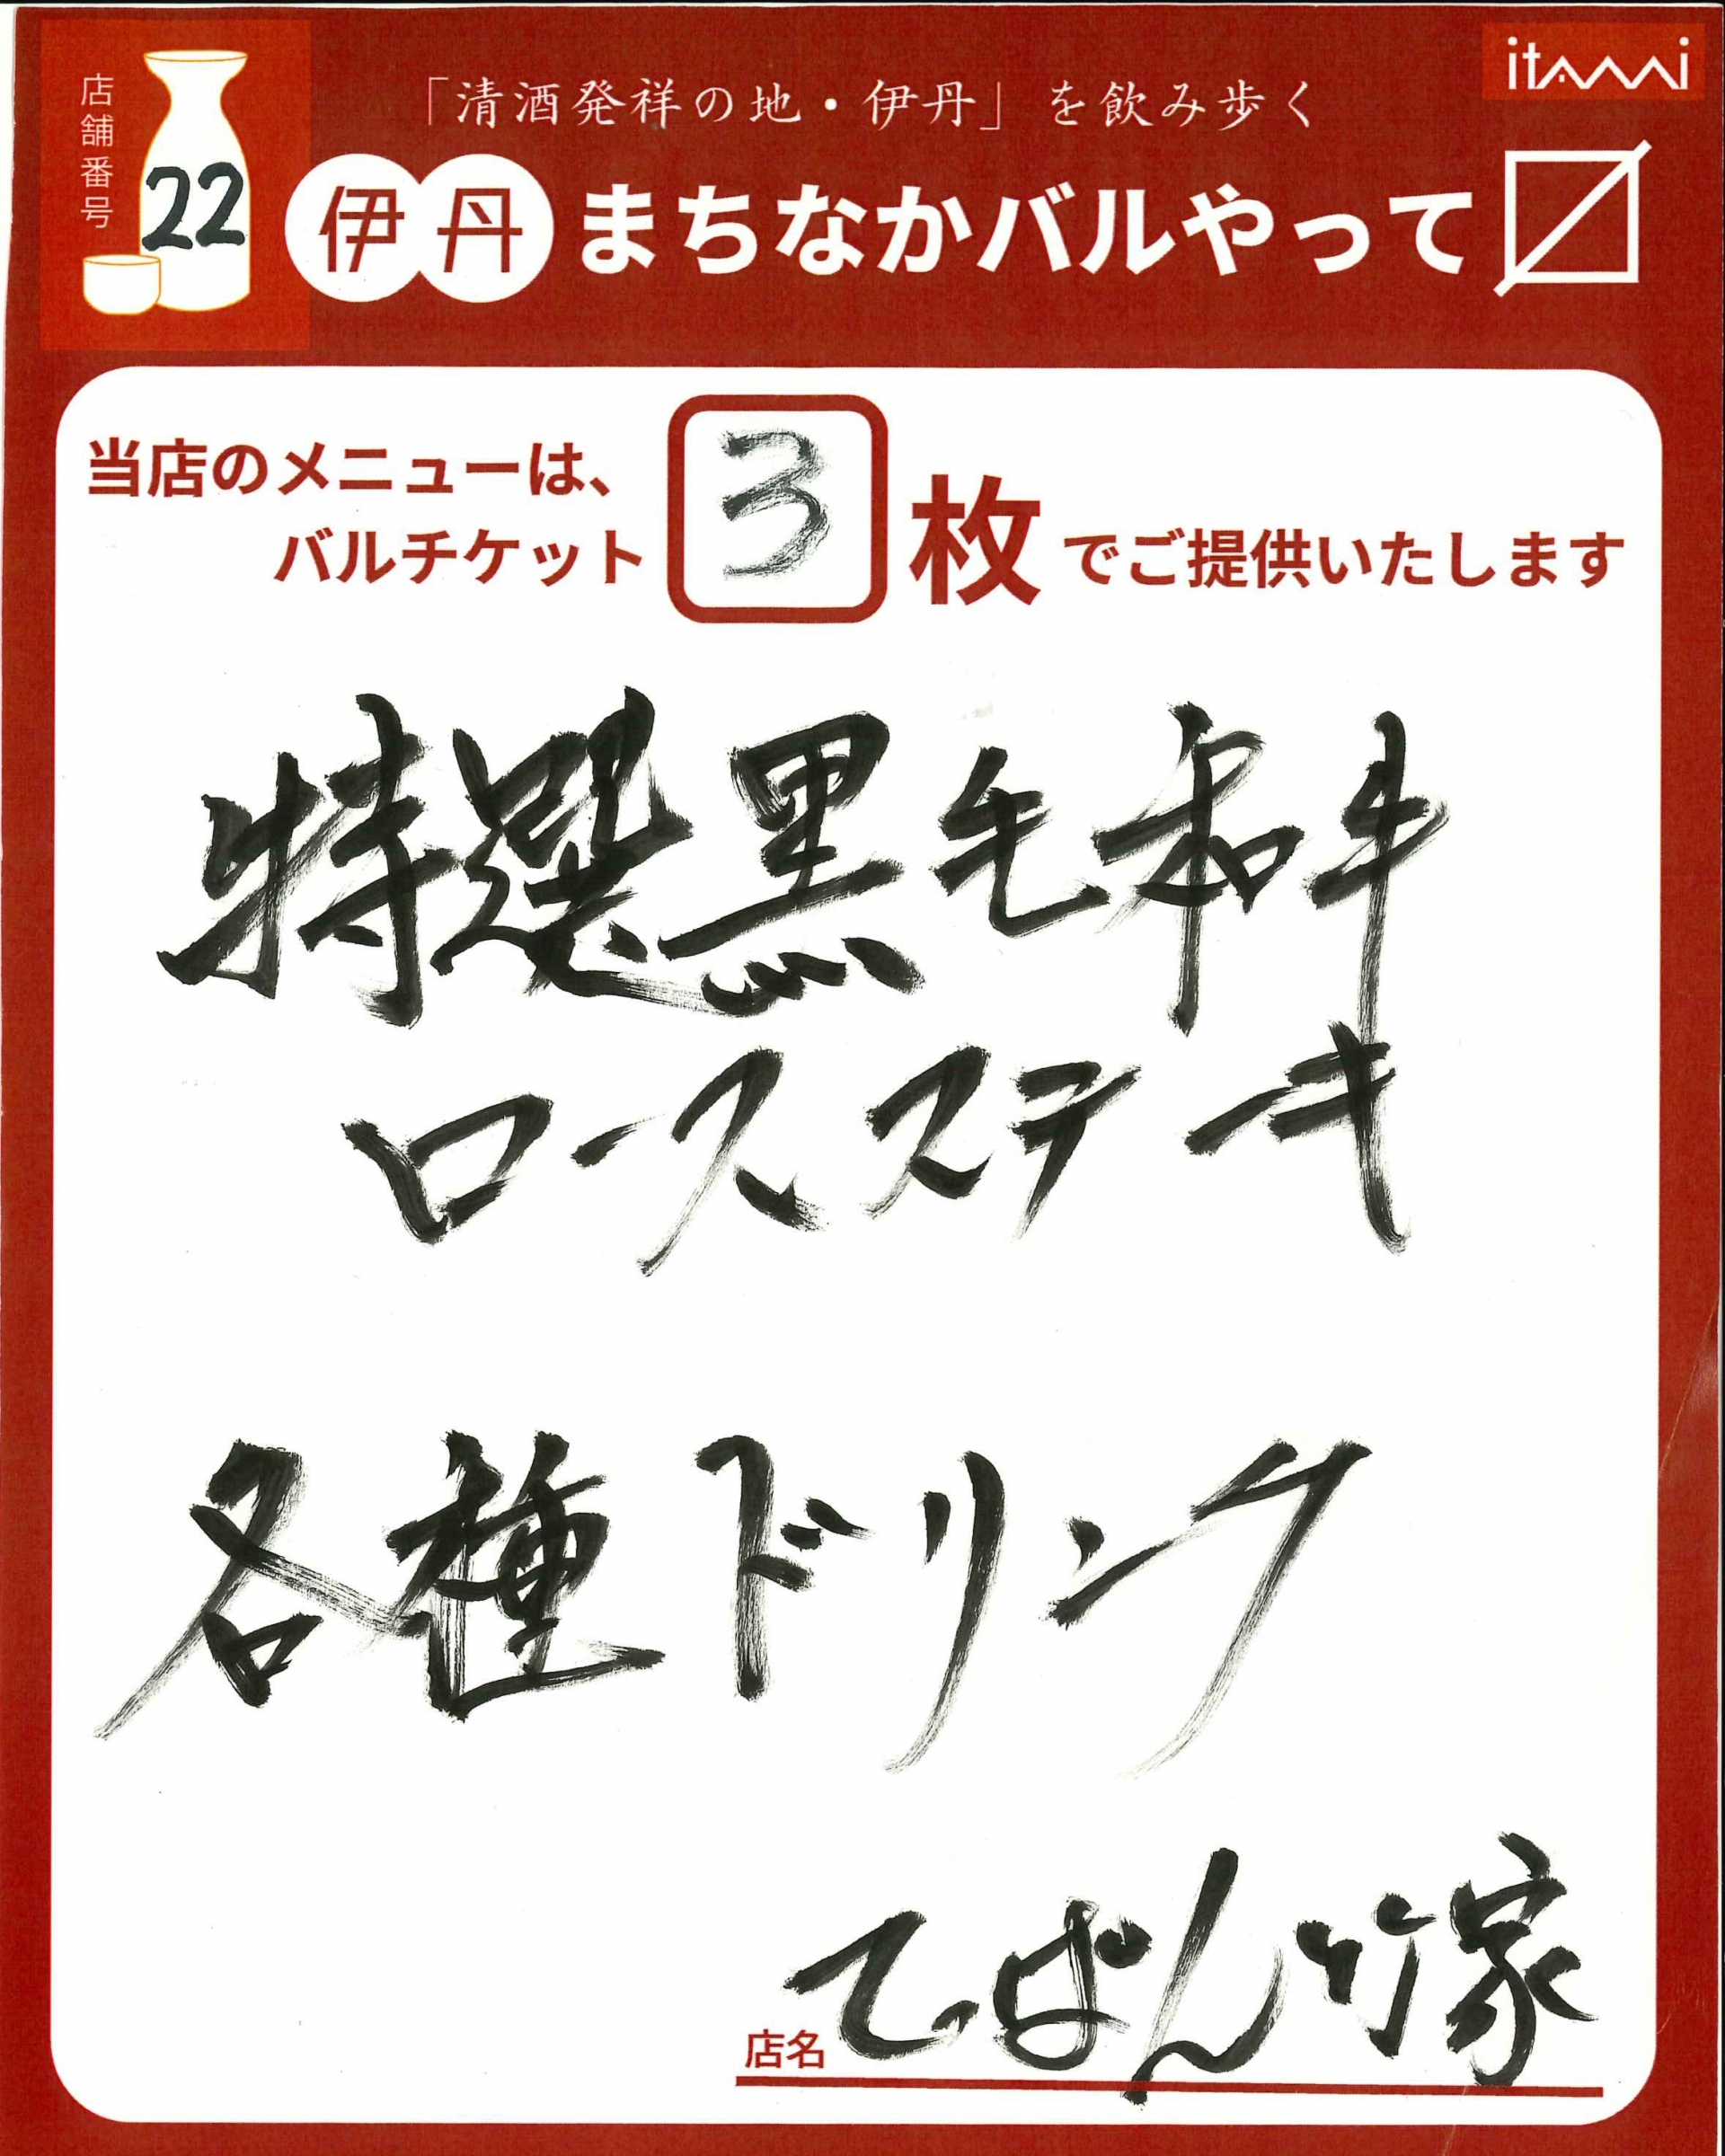 itami
「清酒発祥の地・伊丹」を飲み歩く
店舗番号
22
伊丹まちなかバルやって〼
当店のメニューは、
バルチケット3枚でご提供いたします
特選黒毛和牛
ロースステーキ
各種ドリンク
店名 てっぱん竹家